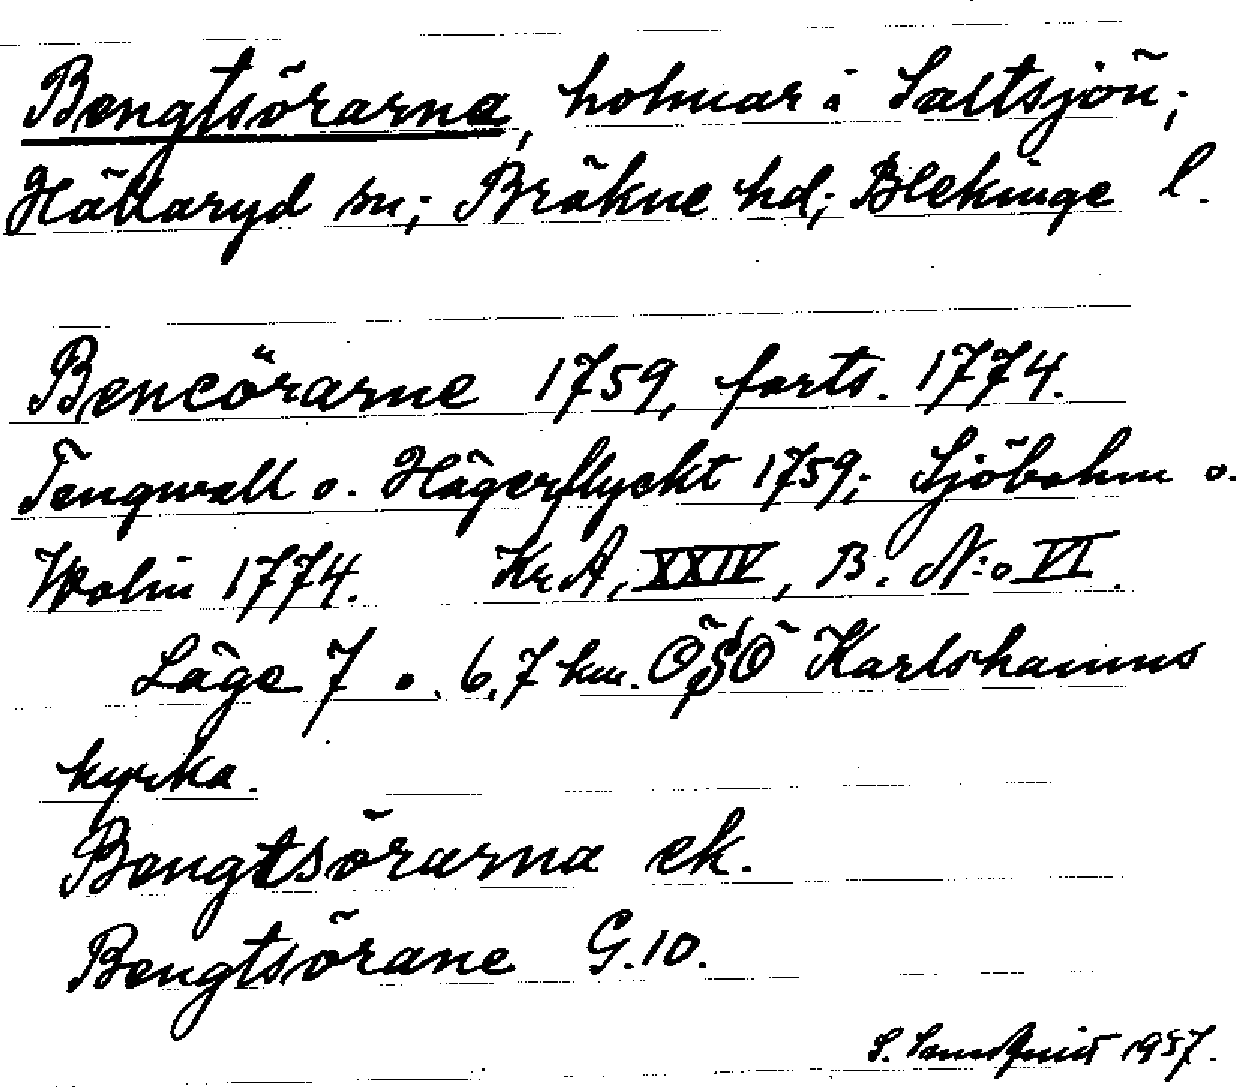 Bengtsörarna, holmar i Saltsjön;
Hällaryd sn; Bräkne hd; Blekinge l.
Bencörarne 1759, forts. 1774.
Tengwall o. Hägerflyckt 1759; Sjöbohm o.
Wolin 1774. KrA, XXIV, B. N:o VI.
Läge 7 o. 6,7 km. OSO Karlshamns
kyrka.
Bengtsörarna ek.
Bengtsörane G.10.
S. 1957.